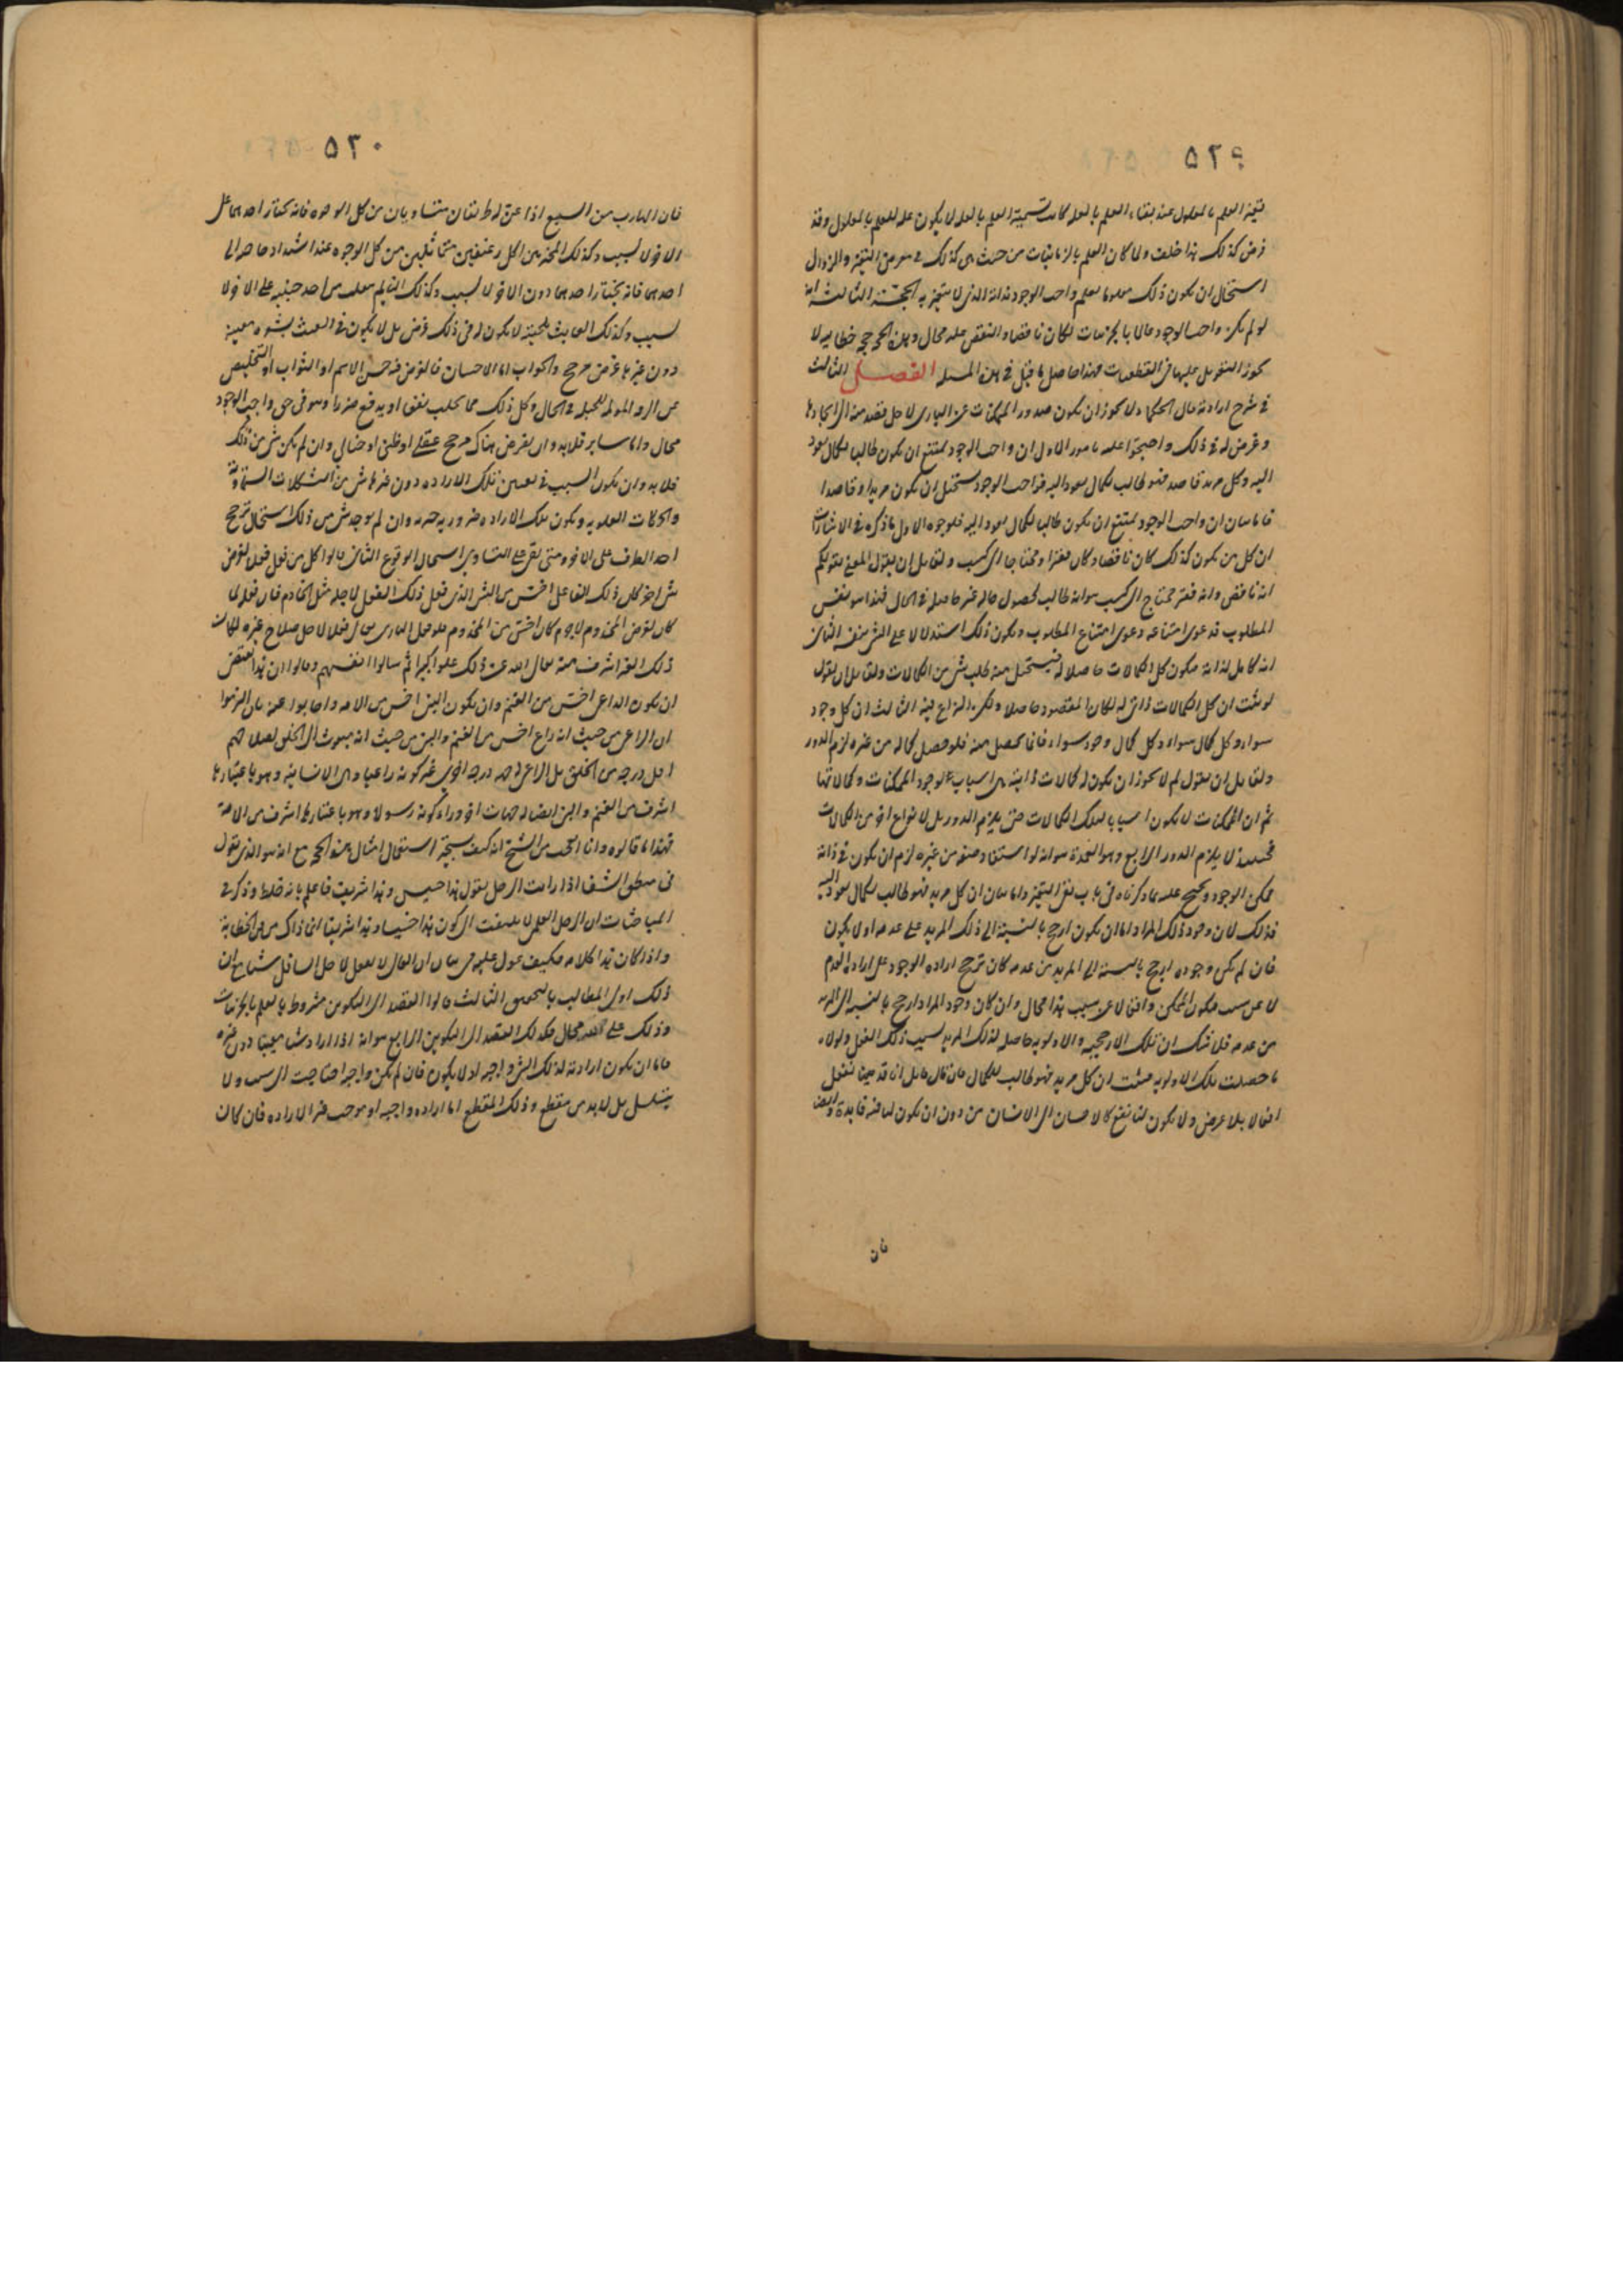 ٥٢٩
العلم بالمعلول عند بقاء العلم بالعلة لا يكون علة للعلم بالمعلول وقد
فرض كذلك هذا خلف ولما كان العلم بالزمانيات من حيث هي كذلك في معرض التغير والزوال
استحال ان يكون ذلك معلوما لعلم واجب الوجود لذاته الذي لا يتغير به الحجة الثالثة انه
لو لم يكن واجب الوجود عالما بالجزئيات لكان ناقصا والنقص عليه محال وهذه الحجج خطابية لا
يجوز التعويل عليها في القطعيات فهذا حاصل ما قيل في هذه المسئلة الفصل الثالث
في شرح ارادته قال الحكماء لا يجوز ان يكون صدور الممكنات عن الباري لاجل قصد منه الى ايجادها
وغرض له في ذلك واحتجوا عليه بامور الاول ان واجب الوجود يمتنع ان يكون طالبا لكمال يعود
اليه وكل مريد قاصد فهو طالب لكمال يعود اليه فواجب الوجود يستحيل ان يكون مريدا وقاصدا
فاما بيان ان واجب الوجود يمتنع ان يكون طالبا لكمال يعود اليه فلوجوه الاول ما ذكره في الاشارات
ان كل من يكون كذلك كان ناقصا وكان فقيرا ومحتاجا الى كسب ولقائل ان يقول المعني بقولكم
انه ناقص وانه فقير محتاج الى كسب هو انه طالب لحصول ماله غير حاصل في الحال فهذا هو نفس
المطلوب فدعوى امتناعه دعوى امتناع المطلوب ويكون ذلك استدلالا على الشيء بنفسه الثاني
انه كامل لذاته فيكون كل الكمالات حاصلا له فيستحيل منه طلب شيء من الكمالات ولقائل ان يقول
لو ثبت ان كل الكمالات ذاتي له لكان المقصود حاصلا ولكن النزاع فيه الثالث ان كل وجود
سواه وكل كمال سواه وكل كمال وجود سواه فانما يحصل منه فلو حصل كماله من غيره لزم الدور
ولقائل ان يقول لم لا يجوز ان يكون له كمالات ذاتية هي اسباب لوجود الممكنات وكمالاتها
ثم ان الممكنات لا يكون اسبابا لتلك الكمالات حتى يلزم الدور بل لانواع اخر من الكمالات
فحينئذ لا يلزم الدور الرابع وهو العمدة هو انه لو استفاد صفة من غيره لزم ان يكون في ذاته
ممكن الوجود ويحتج عليه بما ذكرناه في باب نفي التغير واما بيان ان كل مريد فهو طالب لكمال يعود اليه
فذلك لان وجود ذلك المراد اما ان يكون ارجح بالنسبة الى ذلك المريد على عدمه او لا يكون
فان لم يكن وجوده ارجح بالنسبة الى المريد من عدمه كان ترجح ارادة الوجود على ارادة العدم
لا عن سبب فيكون الممكن واقعا لا عن سبب هذا محال وان كان وجود المراد ارجح بالنسبة الى المريد
من عدمه فلا شك ان تلك الارجحية والاولوية حاصلة لذلك المريد بسبب ذلك الفعل ولولاه
ما حصلت تلك الاولوية فثبت ان كل مريد فهو طالب للكمال فان قال قائل انا قد نفعل
افعالا بلا غرض ولا يكون لنا نفع كالاحسان الى الانسان من دون ان يكون لنا فيه فائدة وايضا
فان
٥٣٠
فان الهارب من السبع اذا عن له طريقان متساويان من كل الوجوه فانه يختار احدهما على
الاخر لا لسبب وكذلك المخير بين اكل رغيفين متماثلين من كل الوجوه عند اشتداد حاجته الى
احدهما فانه يختار احدهما دون الاخر لا لسبب وكذلك النائم ينقلب من احد جنبيه على الاخر لا
لسبب وكذلك العابث بلحيته لا يكون له في ذلك غرض بل لا يكون في العبث بشعرة معينة
دون غيرها غرض مرجح والجواب اما الاحسان فالغرض فيه حسن الاسم او الثواب او التخليص
عن الرقة المولمة للجبلة في الحال وكل ذلك مما يجلب نفعا او يدفع ضررا وهو في حق واجب الوجود
محال واما سائر فلا بد وان يفرض هناك مرجح عقلي او ظني او خيالي وان لم يكن شيء من ذلك
فلا بد وان يكون السبب في تعيين تلك الارادة دون غيرها شيء من التشكلات السماوية
والحركات العلوية ويكون تلك الارادة ضرورية وان لم يوجد شيء من ذلك استحال ترجح
احد الطرفين على الاخر ومتى بقي على التساوي استحال الوقوع الثاني قالوا كل من فعل فعلا لغرض
شيء اخر كان ذلك الفاعل اخس من الشيء الذي فعل ذلك الفعل لاجله مثل الخادم فان فعله لما
كان لغرض المخدوم لا جرم كان اخس من المخدوم فلو فعل الباري تعالى فعلا لاجل صلاح غيره لكان
ذلك الغير اشرف منه تعالى الله عن ذلك علوا كبيرا ثم سالوا انفسهم وقالوا ان هذا يقتضي
ان يكون الداعي اخس من الغنم وان يكون النبي اخس من الامة واجابوا عنه بان الزموا
ان الراعي من حيث انه راع اخس من الغنم والنبي من حيث انه مبعوث الى الخلق لصلاحهم
اقل درجة من الخلق بل الراعي له درجة اخرى غير كونه راعيا وهي الانسانية وهو باعتبارها
اشرف من الغنم والنبي ايضا له جهات اخر وراء كونه رسولا وهو باعتبارها اشرف من الامة
فهذا ما قالوه وانا اتعجب من الشيخ انه كيف يستجيز استعمال امثال هذه الحجج مع انه هو الذي يقول
في منطق الشفا اذا رايت الرجل يقول هذا خسيس وهذا شريف فاعلم بانه خلط وذكر في
المباحثات ان الرجل العلمي لا يلتفت الى كون هذا خسيسا وهذا شريفا انما ذاك من الخطابة
واذا كان هذا كلامه فكيف عول عليه في بيان ان العالي لا يفعل لاجل السافل مع ان
ذلك اولى المطالب بالتحقيق الثالث قالوا القصد الى التكوين مشروط بالعلم بالجزئيات
وذلك على الله محال فكذلك القصد الى التكوين الرابع هو انه اذا اراد شيئا معينا دون غيره
فاما ان يكون ارادته لذلك الشيء واجبة او لا يكون فان لم يكن واجبة احتاجت الى سبب ولا
يتسلسل بل لا بد من مقطع وذلك المقطع اما ارادة واجبة او موجب غير الارادة فان كان